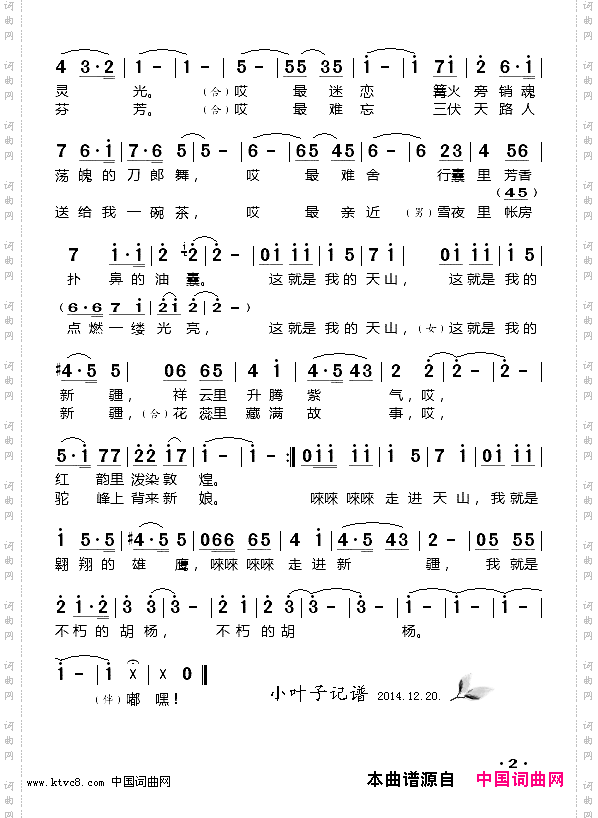 4 3·2 | 1 - | 1 - | 5 - | 55 35 | 1 - | 1 71 | 2 6·1 |
灵 光。 (合)哎 最 迷 恋 篝火 旁 销魂
芬 芳。 (合)哎 最 难 忘 三伏 天 路人
7 6·1 | 7·6 5 | 5 - | 6 - | 65 45 | 6 - | 6 23 | 4 56 |
荡 魄的 刀 郎 舞, 哎 最 难 舍 行囊 里 芳香
(45)
送 给 我 一 碗 茶, 哎 最 亲 近 (男)雪夜 里 帐房
7 1·1 | 2 2 | 2 - | 01 11 | 1 5 | 7 1 | 01 11 | 1 5 |
扑 鼻 的 油 囊。 这就是 我的 天山, 这就是 我的
(6·6 7 1 | 21 21 | 2 -)
点燃 一 缕 光 亮, 这就是 我的 天山,(女)这就是 我的
#4·5 5 | 06 65 | 4 1 | 4·5 43 | 2 2 | 2 - | 2 - |
新 疆, 祥 云里 升 腾 紫 气,哎,
新 疆,(合)花 蕊里 藏 满 故 事,哎,
5·1 77 | 22 17 | 1 - | 1 - :| 011 11 | 1 5 | 7 1 | 01 11 |
红 韵里 泼染 敦 煌。
驼 峰上 背来 新 娘。 唻唻 唻唻 走 进 天 山,我 就是
1 5·5 | #4·5 5 | 066 65 | 4 1 | 4·5 43 | 2 - | 05 55 |
翱 翔的 雄 鹰,唻唻 唻唻 走 进 新 疆, 我 就是
2 1·2 | 3 3 | 2 1·2 | 3 - | 3 - | 1 - | 1 - | 1 - |
不 朽 的 胡 杨, 不 朽 的 胡 杨。
1 - | 1 X | X 0 ‖
(伴)嘟 嘿!
小叶子记谱 2014.12.20.
·2·
www.ktvc8.com 中国词曲网
本曲谱源自 中国词曲网